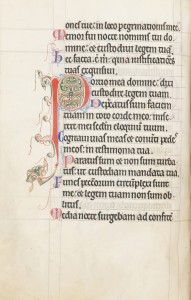 ones tue: in loco peregrinationis mee.
Memor fui nocte nominis tui do
mine: et custodiui legem tuam.
Hec facta est m: quia iustificationes
tuas exquisiui.
Portio mea domine: dixi cus
todire legem tuam.
Deprecatus sum faciem
tuam in toto corde meo: mise
rere mei secundum eloquium tuum.
Cogitaui uias meas et conuerti pedes
meos: in testimonia tua.
Paratus sum et non sum turba
tus: ut custodiam mandata tua.
Funes peccatorum circumplexi sunt
me: et legem tuam non sum oblitus.
Media nocte surgebam ad confite